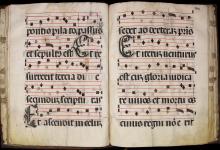 pontio pila to passus
et sepultus est Et
surrexit tercia di
secundum scriptu ras
Et ascendit in celum
sedet ad dexteram pris
Et iterum venturus
est cum gloria iudica
re vivos et mortu os
cuius regni no e rit